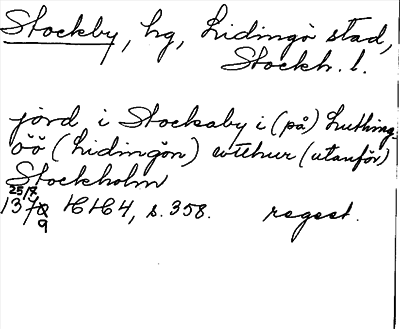 Stockby, hg, Lidingö stad,
Stockh. l.
jord i Stocksaby i (på) Luthing-
öö (Lidingön) wtthur (utanför)
Stockholm
25/7
1379 HH 4, s. 358. regest.